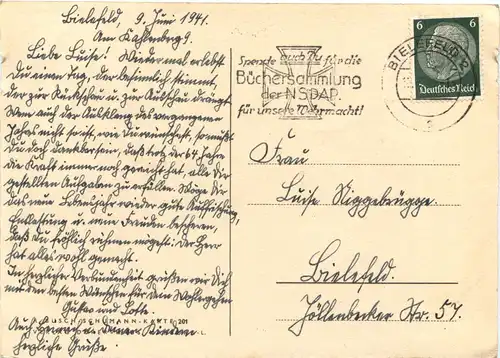 Bielefeld, 9. Juni 1941.
Am Kahlenberg 9.
Liebe Luise! Wiedermal erlebst
Du einen Tag, der besinnlich stimmt,
der zur Rückschau u. zur Ausschau drängt.
Wenn auch der Ausklang des vergangenen
Jahres nicht so ist, wie Du wünschst, so mußt
Du doch dankbar sein, daß trotz der 64 Jahre
die Kraft immer noch gereicht hat, alle Dir
gestellten Aufgaben zu erfüllen. Möge Dir
das neue Lebensjahr wieder gute
Entlastung u. neue Freuden bescheren,
daß Du fröhlich rühmen mögest: Der Herr
hat alles wohl gemacht.
In herzlicher Verbundenheit grüßen wir Dich
mit den besten Wünschen für Dein Wohlergehen
Gustav und Lotte.
Auch Kindern
herzliche Grüße.
Spende auch Du für die
Büchersammlung
der NSDAP.
für unsere Wehrmacht!
BIELEFELD 2
6 6
Deutsches Reich
Frau
Luise Niggebrügge.
Bielefeld.
Jöllenbecker Str. 57.